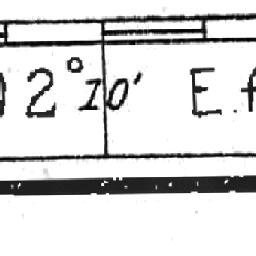 2°10′ E.